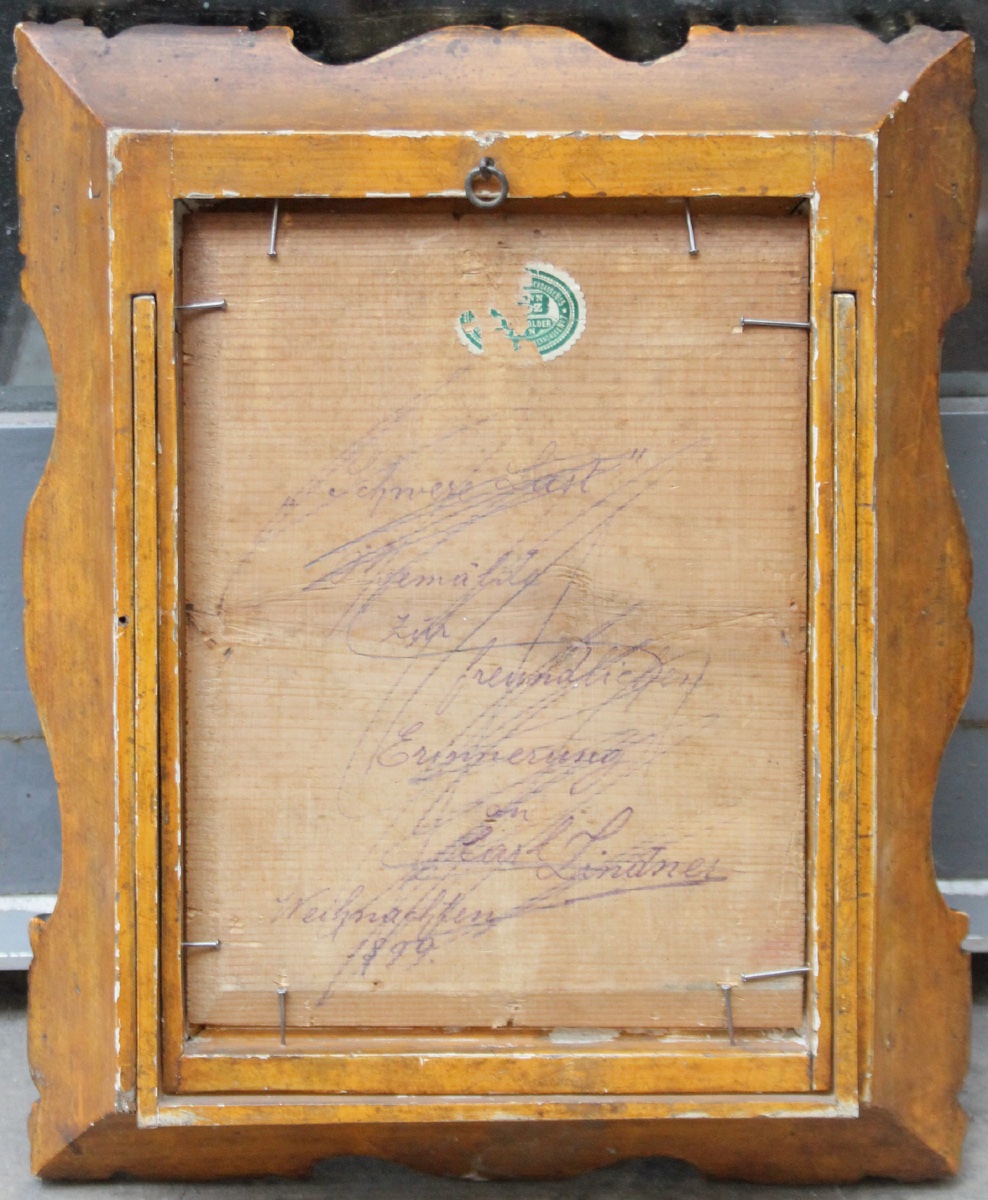 "Schwere Last"
Gemälde
zur
freundlichen
Erinnerung
an
Karl Lindner
Weihnachten
1899.